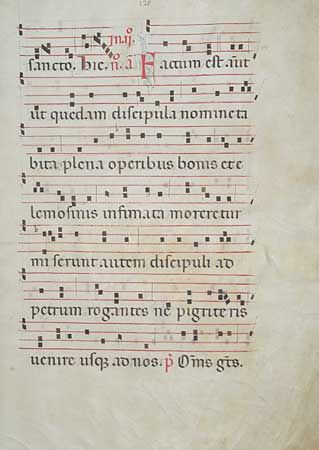 in. ij°.
sancto. Hic. n̊. ā Factum est. aūt
ut quedam discipula nomineta
bita plena operibus bonis et e
lemosinis infimata moreretur
miserunt autem discipuli ad
petrum rogantes ne pigriteris
venire usqꝫ ad nos. p̄ Om̄s gt̄s.